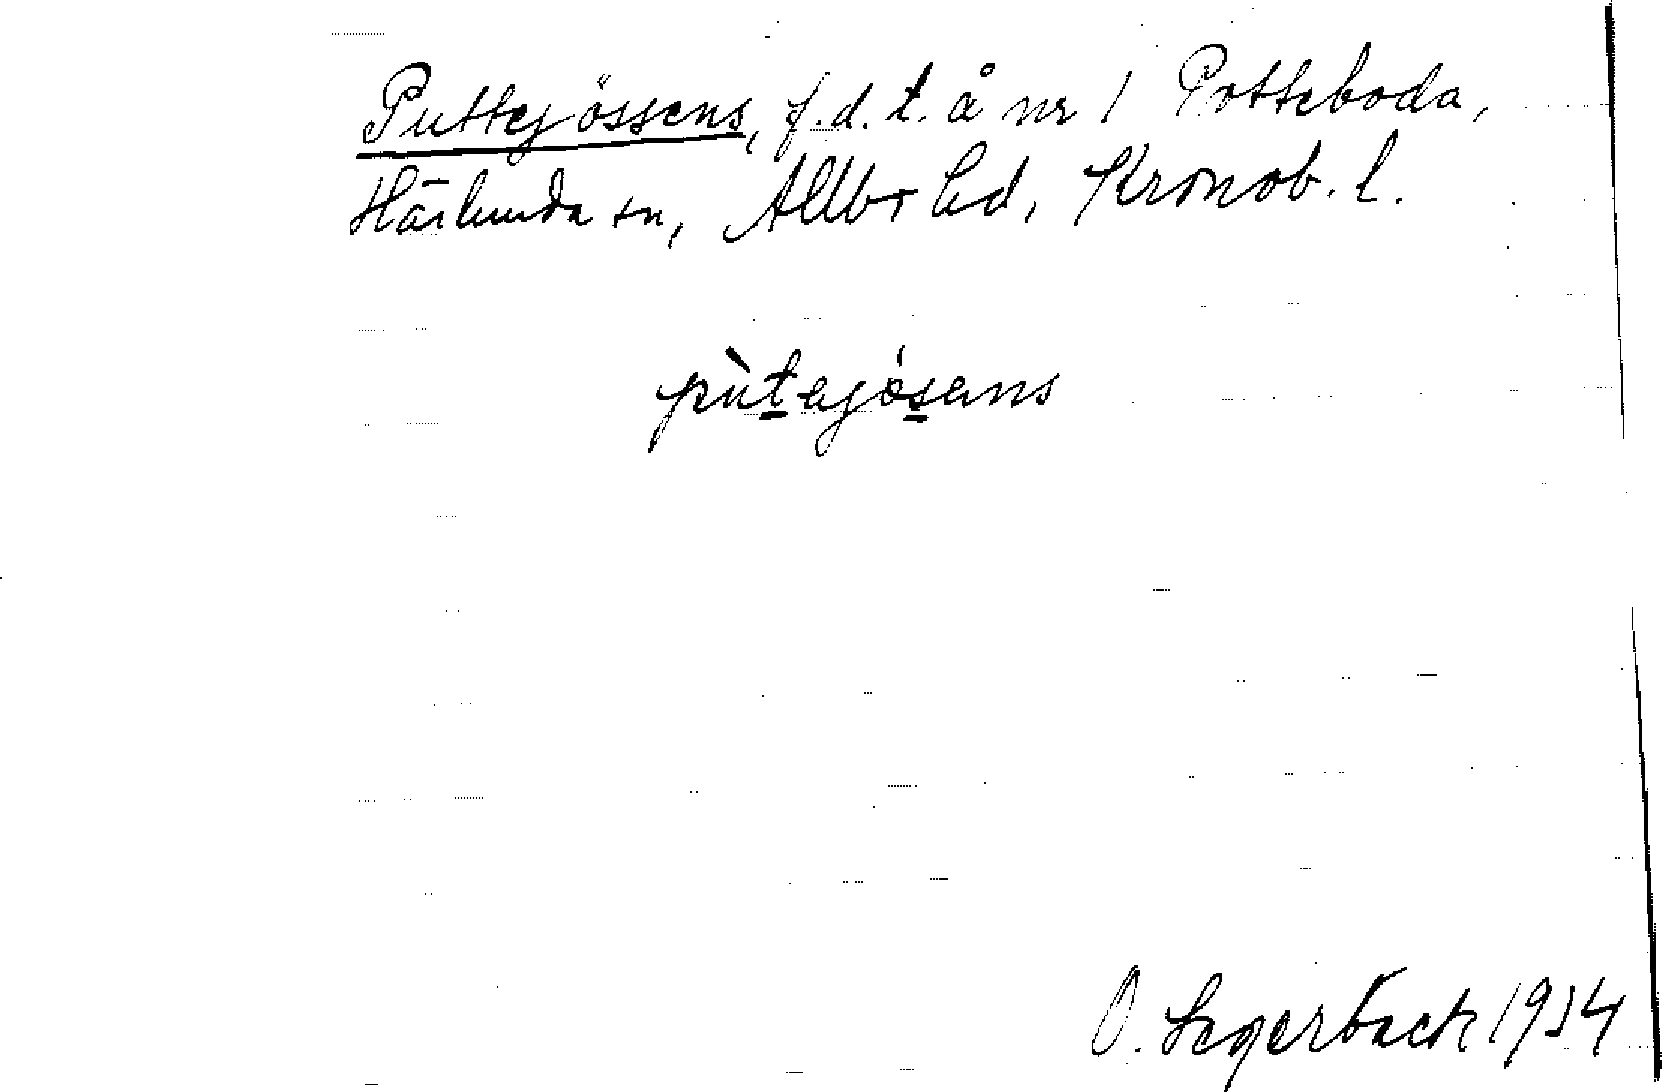 Puttejössens, f.d. t. å nr 1 Potteboda,
Härlunda sn, Allbo hd, Kronob. l.
pùtejösens
O. Segerback 1934